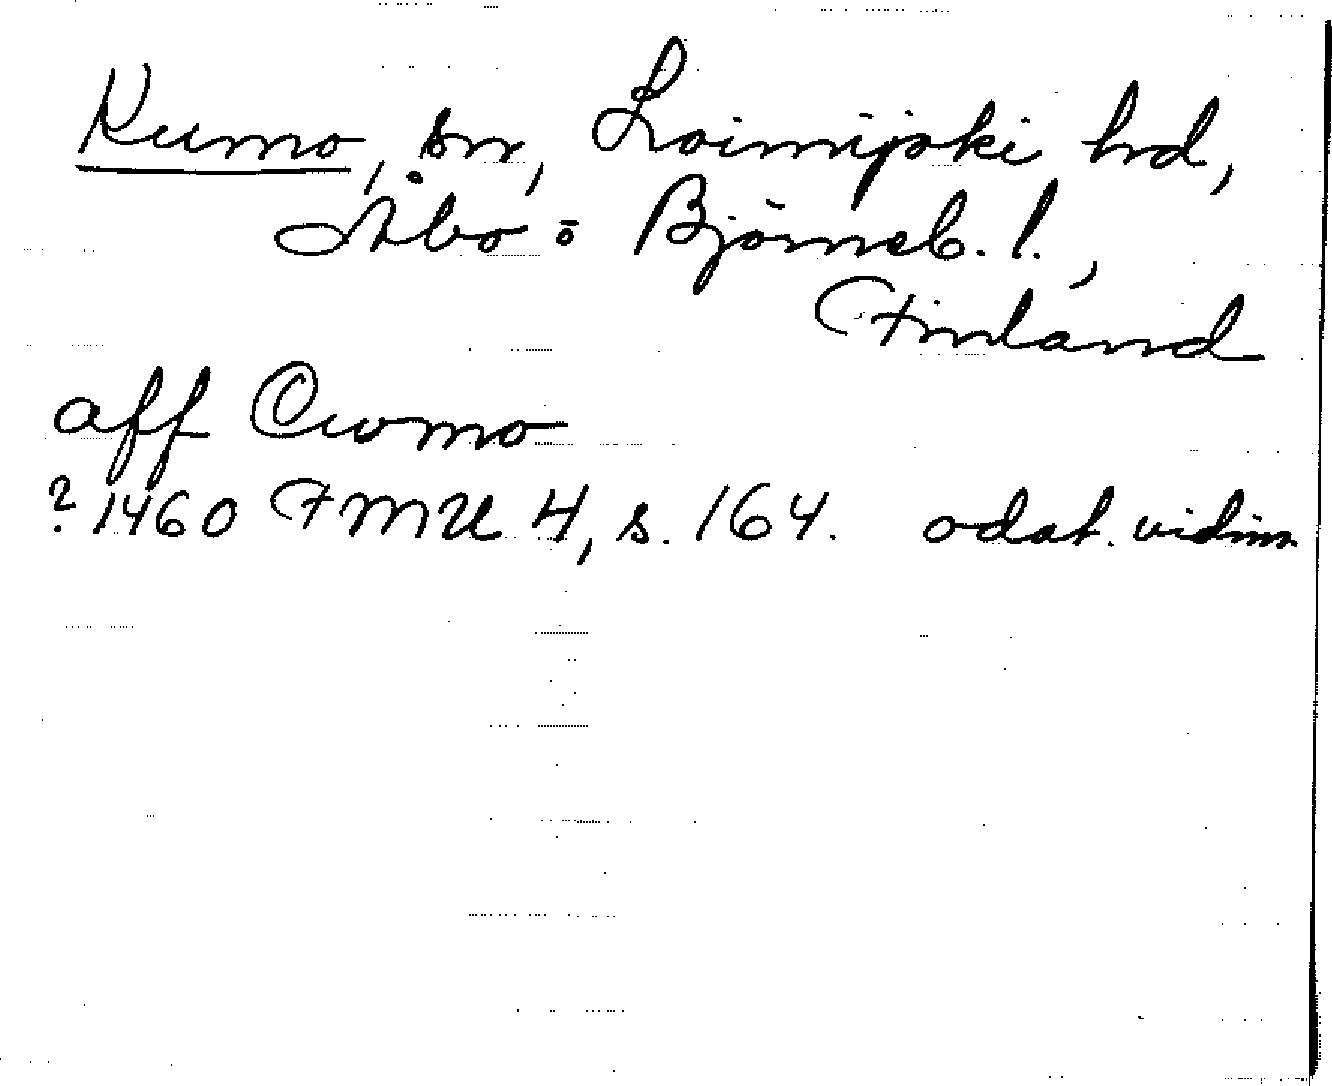 Kumo, sn, Loimijoki hd,
Åbo o Björneb. l.,
Finland
aff Cwmo
? 1460 FMU 4, s. 164. odat. vidim